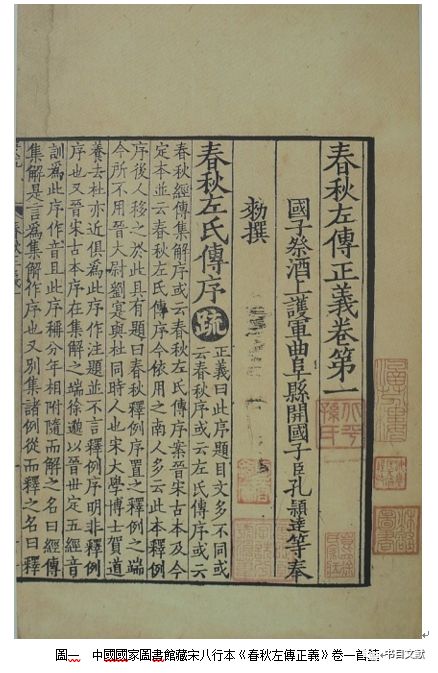 春秋左傳正義卷第一
國子祭酒上護軍曲阜縣開國子臣孔穎達等奉
勑撰
春秋左氏傳序 疏 正義曰此序題目文多不同或
云春秋序或云左氏傳序或云
春秋經傳集解序或云春秋左氏傳序案晉宋古本及今
定本並云春秋左氏傳序今依用之南人多云此本釋例
序後人移之於此且有題曰春秋釋例序置之釋例之端
今所不用晉大尉劉寔與杜同時人也宋大學博士賀道
養去杜亦近俱為此序作注題並不言釋例序明非釋例
序也又晉宋古本序在集解之端徐邈以晉世定五經音
訓為此序作音且此序稱分年相附隨而解之名曰經傳
集解是言為集解作序也又別集諸例從而釋之名曰釋
圖一 中國國家圖書館藏宋八行本《春秋左傳正義》卷一首
书目文献